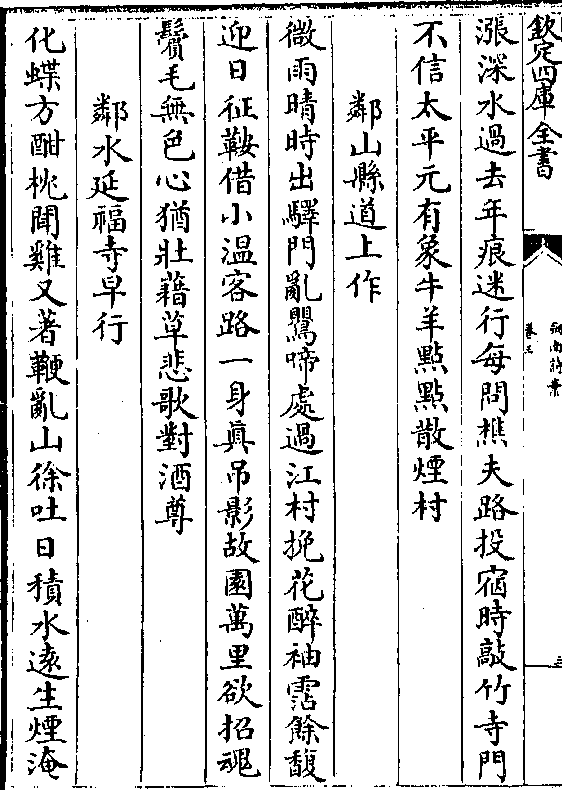 欽定四庫全書
劍南詩稾
卷三
三
漲深水過去年痕迷行每問樵夫路投宿時敲竹寺門
不信太平元有象牛羊點點散煙村
鄰山縣道上作
微雨晴時出驛門亂鶯啼處過江村挽花醉袖霑餘馥
迎日征鞍借小溫客路一身真弔影故園萬里欲招魂
鬢毛無色心猶壯藉草悲歌對酒尊
鄰水延福寺早行
化蝶方酣枕聞雞又著鞭亂山徐吐日積水遠生煙淹